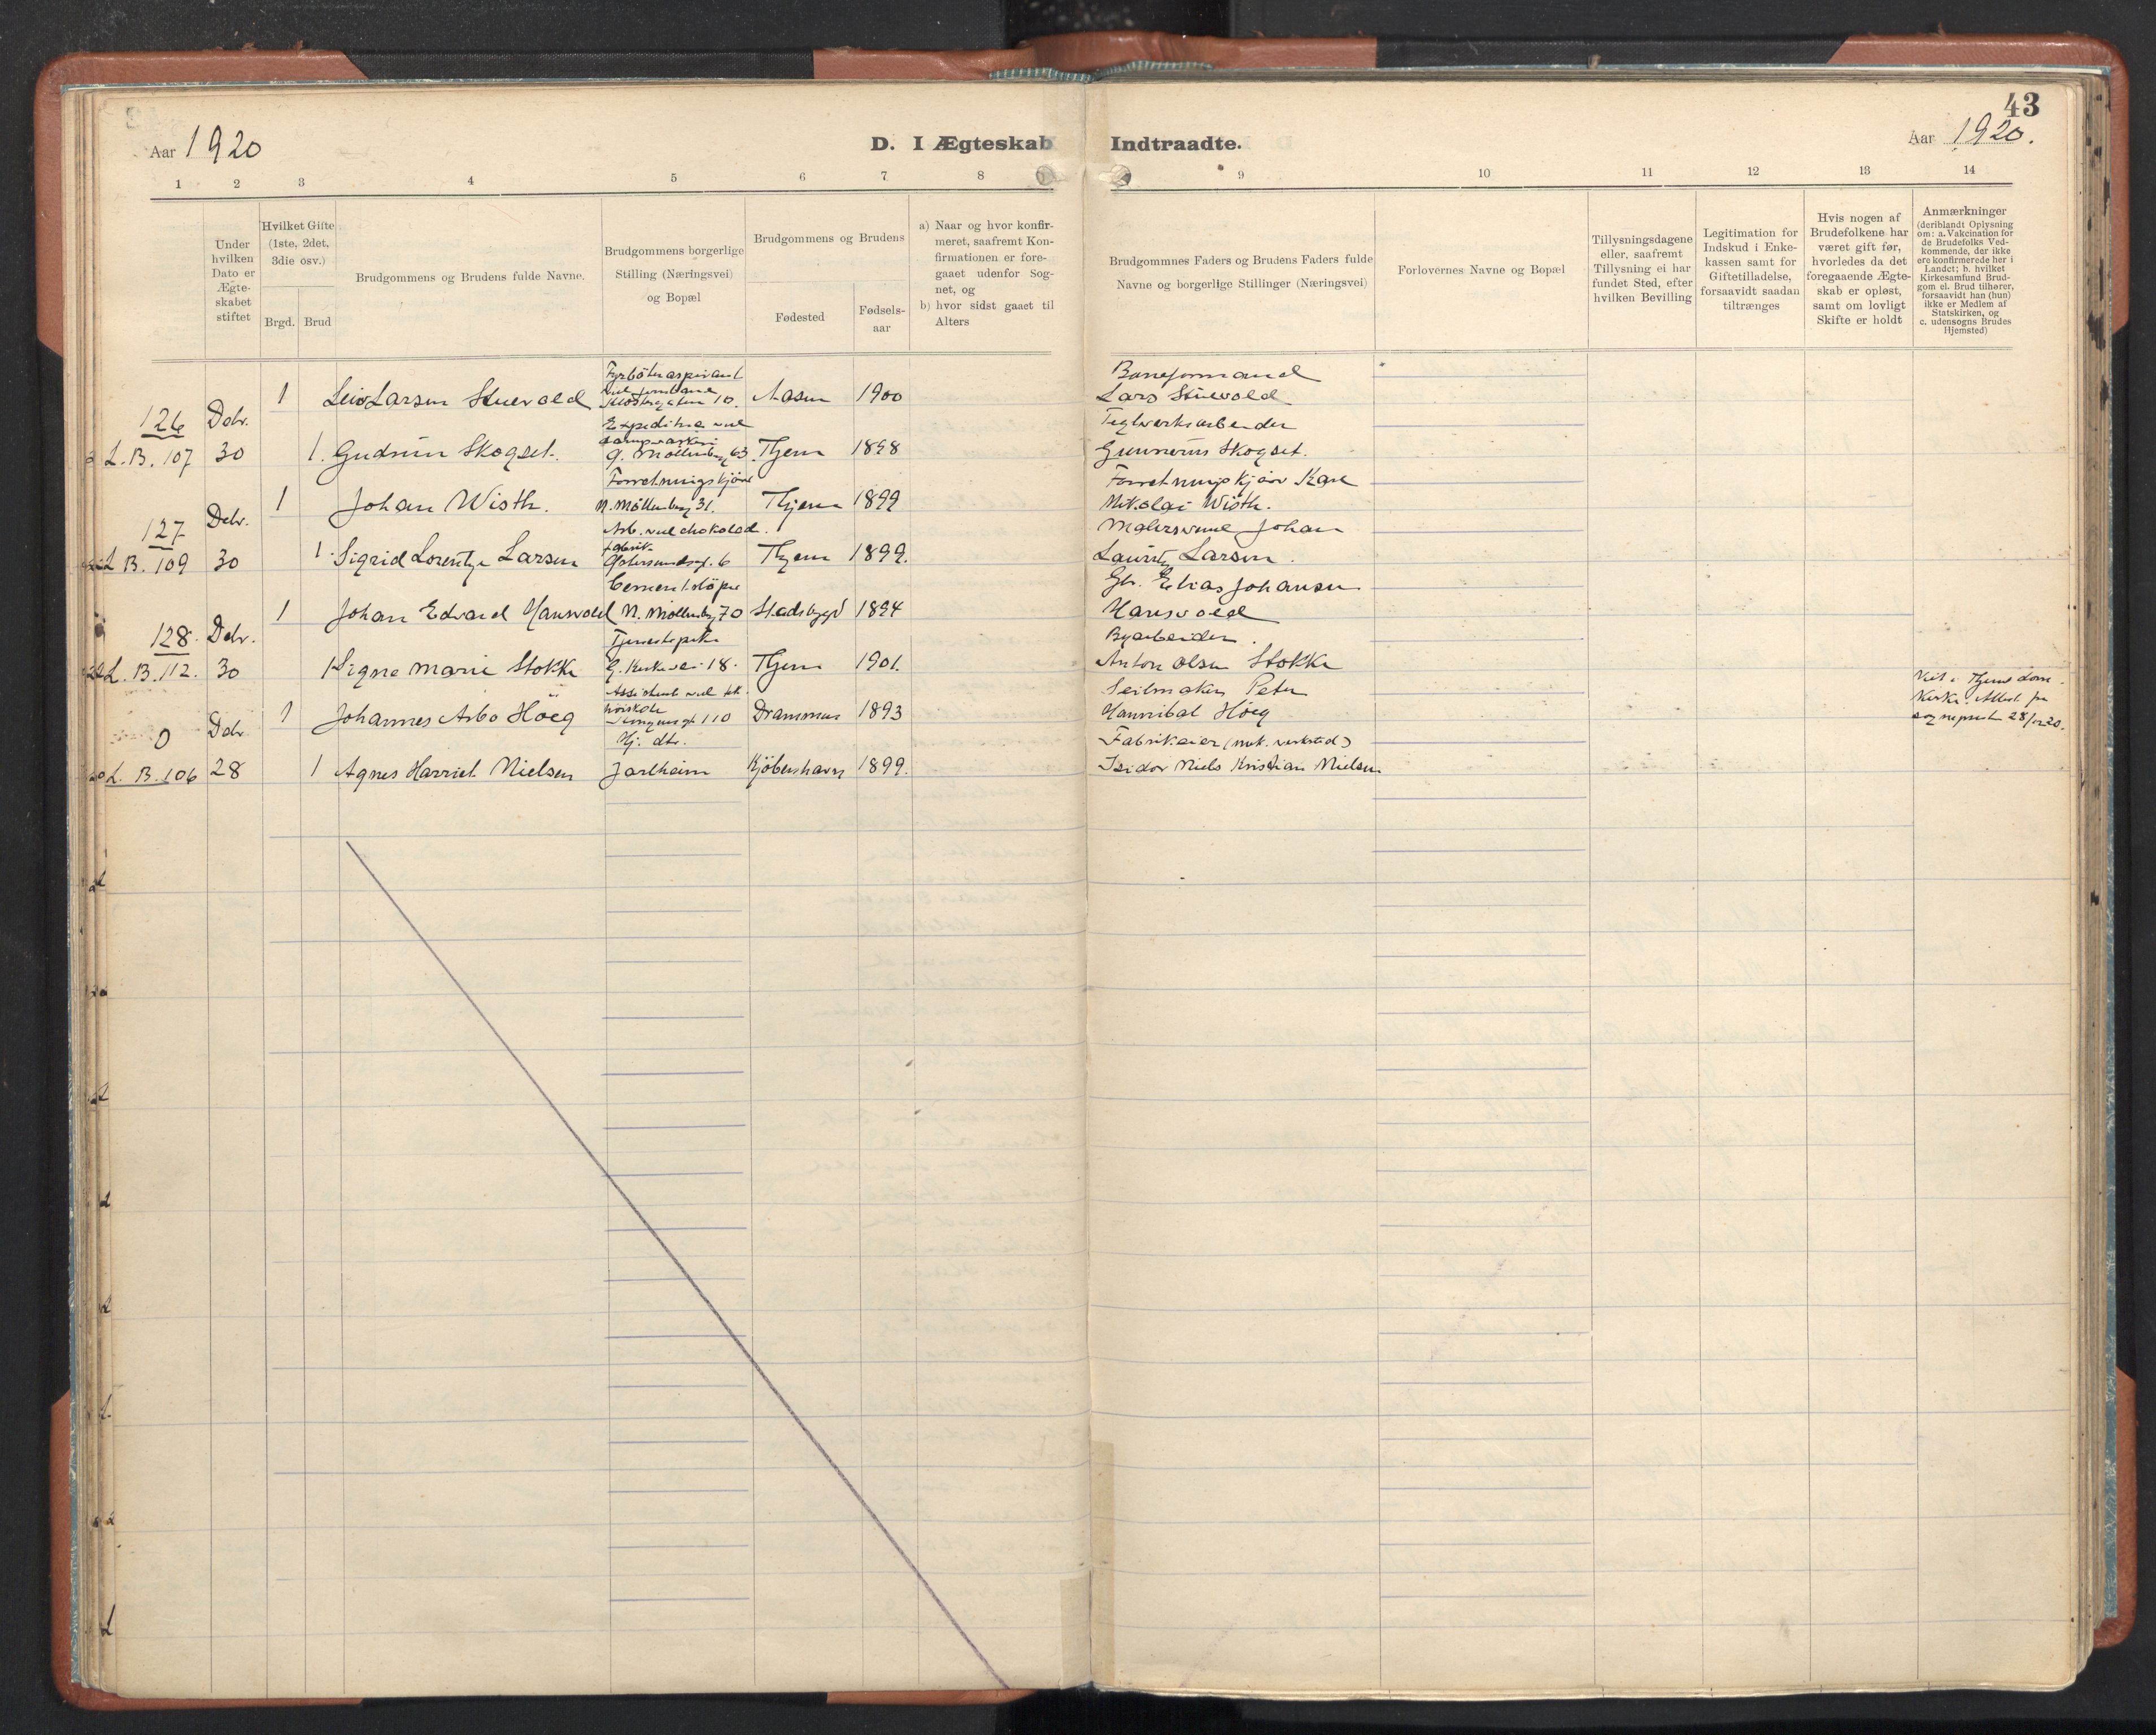 43
Aar 1920
D. I Ægteskab Indtraadte.
Aar 1920.
1 2 3 4 5 6 7 8 9 10 11 12 13 14
Under hvilken Dato er Ægte-skabet stiftet
Hvilket Gifte (1ste, 2det, 3die osv.)
Brgd. Brud
Brudgommens og Brudens fulde Navne.
Brudgommens borgerlige Stilling (Næringsvei) og Bopæl
Brudgommens og Brudens
Fødested
Fødsels-aar
a) Naar og hvor konfir-meret, saafremt Kon-firmationen er fore-gaaet udenfor Sog-net, og
b) hvor sidst gaaet til Alters
Brudgommnes Faders og Brudens Faders fulde Navne og borgerlige Stillinger (Næringsvei)
Forlovernes Navne og Bopæl
Tillysningsdagene eller, saafremt Tillysning ei har fundet Sted, efter hvilken Bevilling
Legitimation for Indskud i Enke-kassen samt for Giftetilladelse, forsaavidt saadan tiltrænges
Hvis nogen af Brudefolkene har været gift før, hvorledes da det foregaaende Ægte-skab er opløst, samt om lovligt Skifte er holdt
Anmærkninger (deriblandt Oplysning om: a. Vakcination for de Brudefolks Ved-kommende, der ikke ere konfirmerede her i Landet; b. hvilket Kirkesamfund Brud-gom el. Brud tilhører, forsaavidt han (hun) ikke er Medlem af Statskirken, og c. udensogns Brudes Hjemsted)
Fyrböteraspirant
Baneformand
1 Leiv Larsen 10. Aasen 1900
Lars
126 Debr.
Expeditrice ved
Teglverksarbeider
L.B. 107 30 1. Gudrun Skogset. Ö. Möllenberg 63. Thjem 1898
Gunnerius Skogset.
Forretningskjörer
Forretningskjörer Karl
1 Johan Wisth. N. Möllenberg 31. Thjem 1899
Nikolai Wisth.
127 Debr.
Arb. ved chokolad.
Malersvend Johan
fabrik
L.B. 109 30 1. Sigrid Lorentze Larsen 6 Thjem 1899.
Lauritz Larsen.
Cementstöper
Gbr. Elias Johansen
1 Johan Edvard Hansvold N. Möllenberg 70 Stadsbygd 1894
Hansvold
128. Debr.
Tjenestepike
Byarbeider.
L.B. 112. 30 1 Signe Marie Stokke Kirkevei 18. Thjem 1901.
Anton Olsen Stokke
Assistent ved tek.
Seilmaker Peter
Viet i Thjems dom-
höiskole
kirke. Attest fra
1 Johannes Arbo Höeg 110 Drammen 1893
Hannibal Höeg
sogneprest 28/12 20.
0 Debr.
Hj. dtr.
Fabrikeier (mek. verksted)
L.B. 106 28 1 Agnes Harriet Nielsen Jarlheim Kjöbenhavn 1899.
Isidor Niels Kristian Nielsen